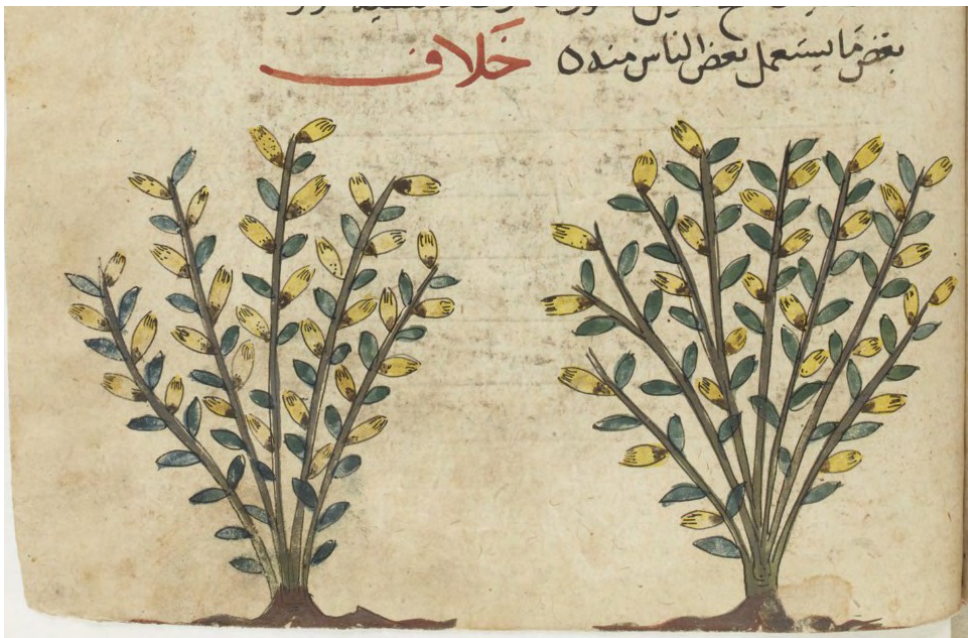 بعض ما يستعمل بعض الناس منه ه خلاف